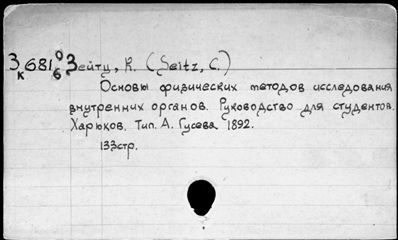 З 681 0/6 Зейту, К. (Seitz, C.)
к
Основы физических методов исследования
внутренних органов. Руководство для студентов.
Харьков. Тип. А. Гусева 1892.
133стр.